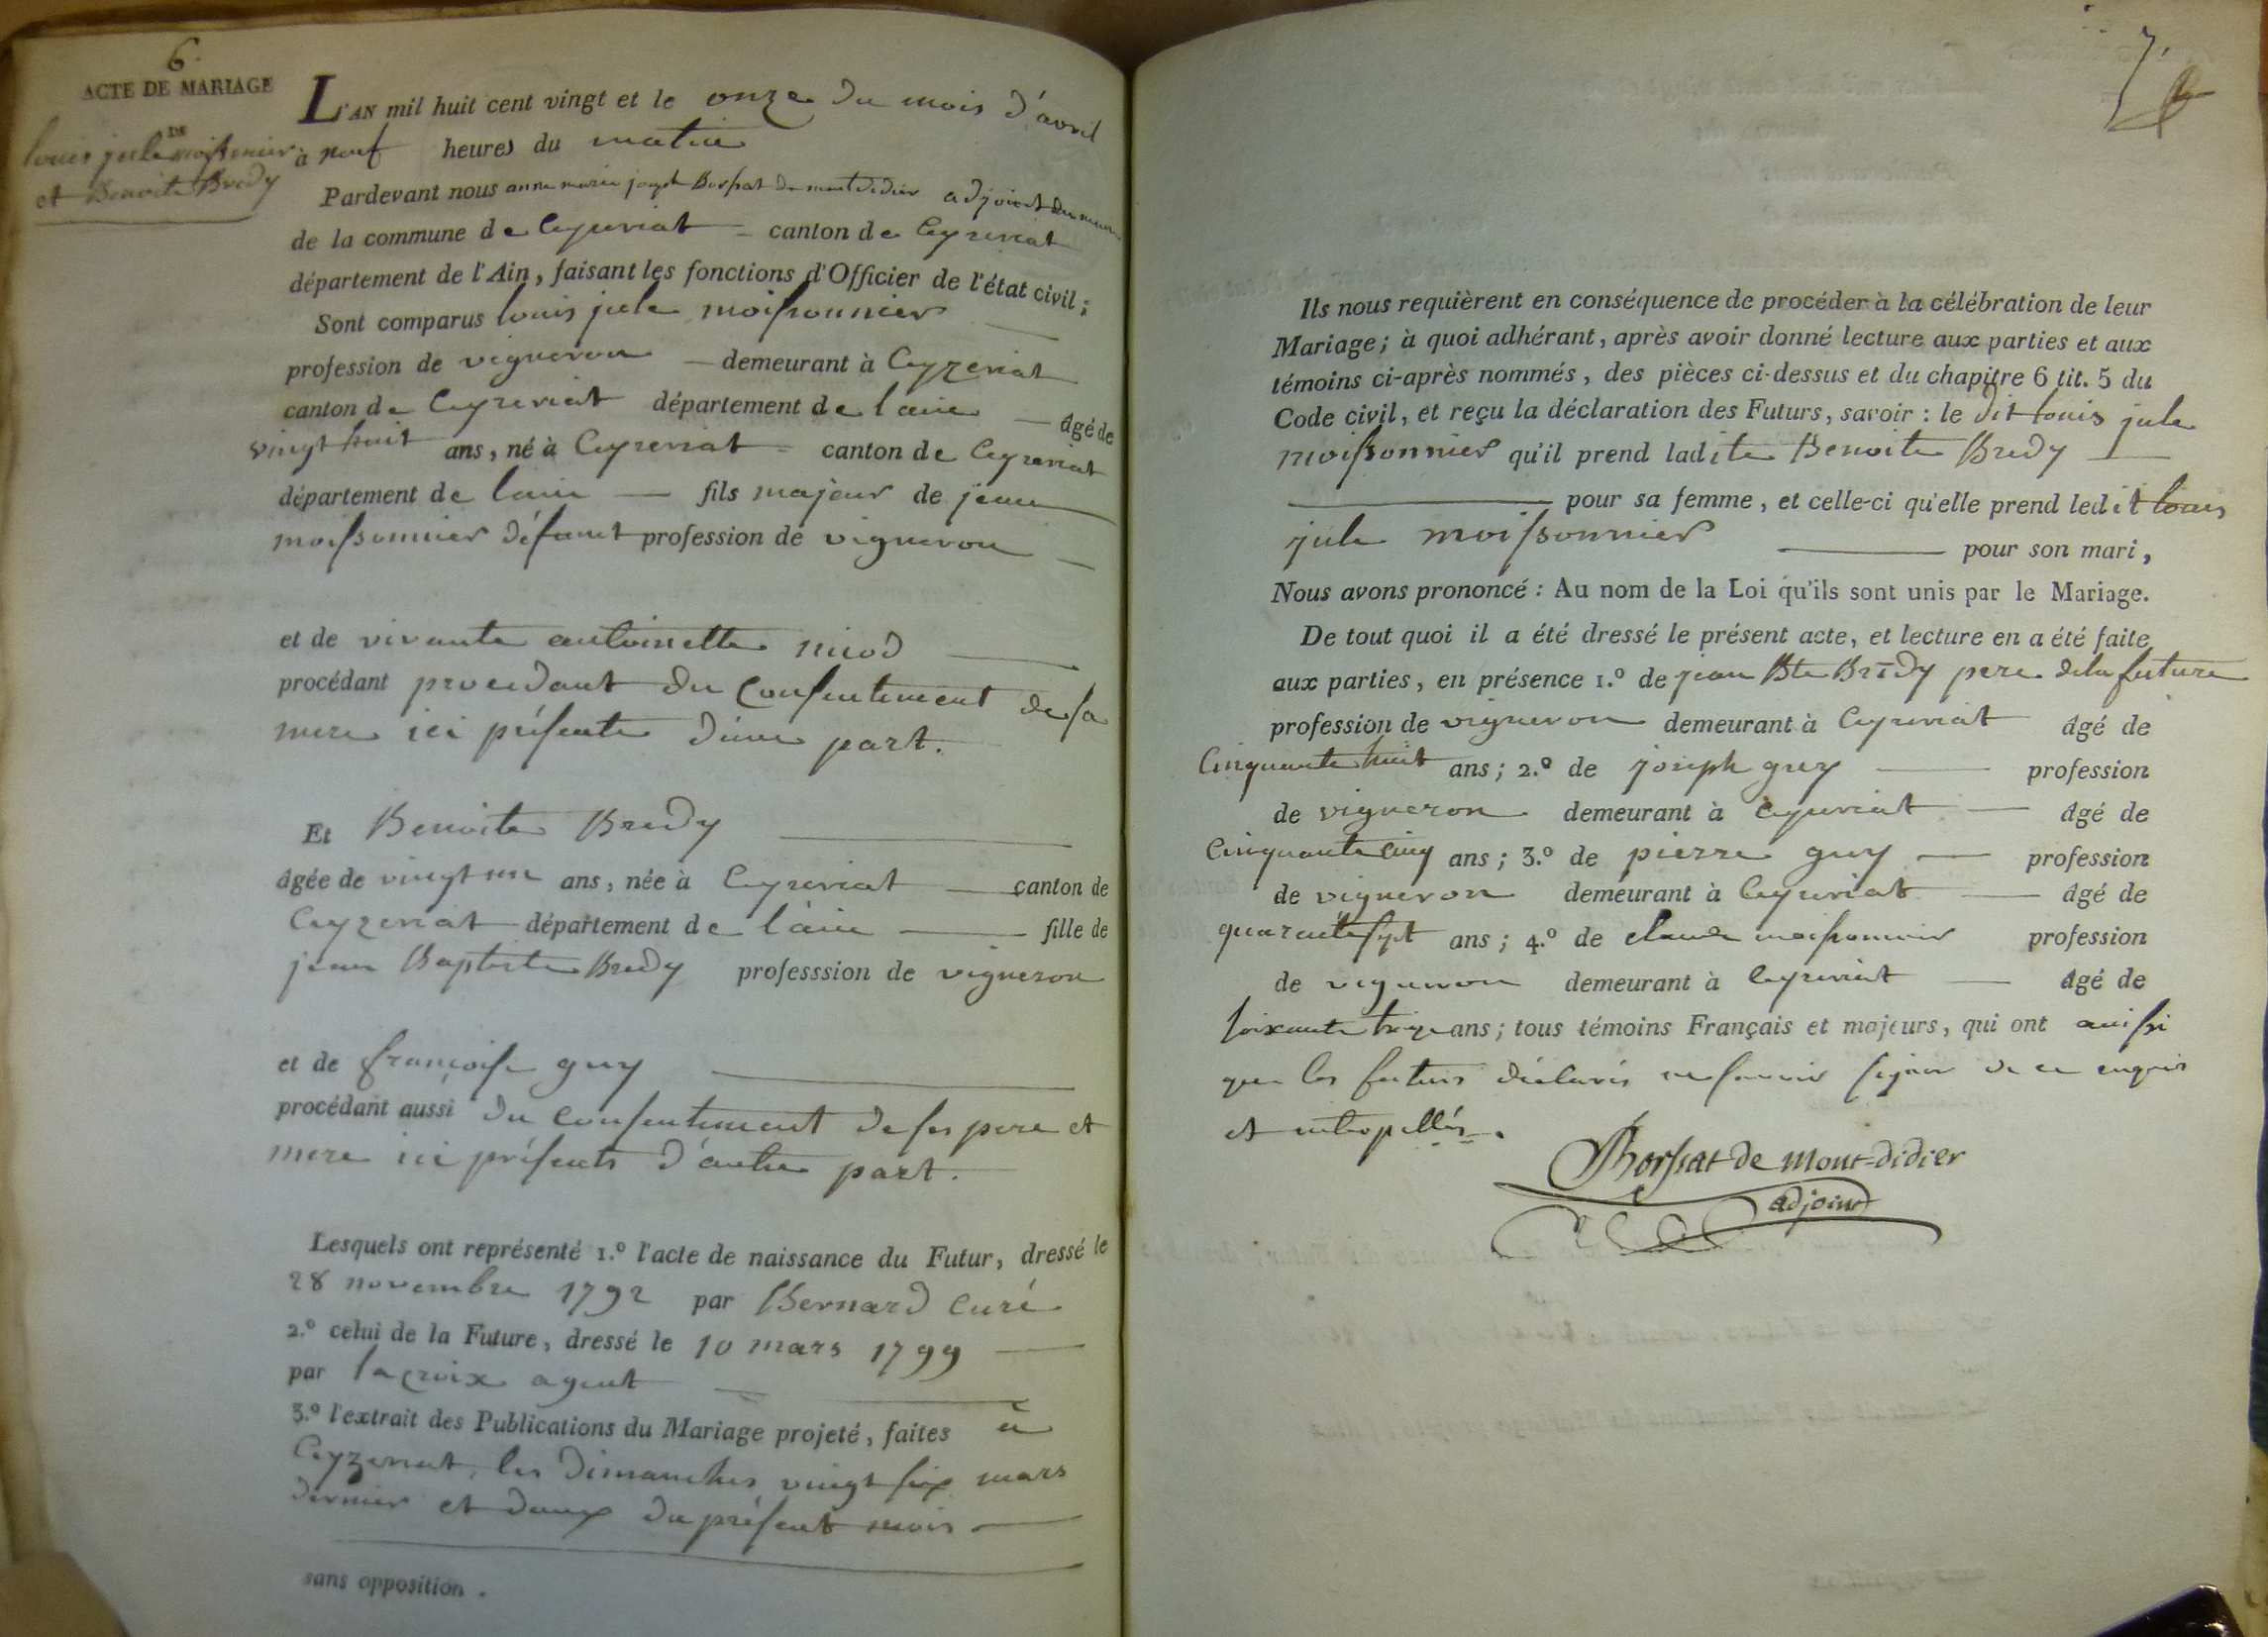 6.
ACTE DE MARIAGE
DE
louis jule moissonnier
et Benoite Bredy
L'AN mil huit cent vingt et le onze du mois d'avril
à neuf heures du matin
Pardevant nous anne marie joseph Borssat de montdidier adjoint du maire
de la commune de Ceyzeriat canton de Ceyzeriat
département de l'Ain, faisant les fonctions d'Officier de l'état civil;
Sont comparus louis jule moissonnier
profession de vigneron demeurant à Ceyzeriat
canton de Ceyzeriat département de l'ain âgé de
vingt huit ans, né à Ceyzeriat canton de Ceyzeriat
département de l'ain fils majeur de jean
moissonnier défunt profession de vigneron
et de vivante antoinette niod
procédant procedant du Consentement de sa
mere ici présente d'une part.
Et Benoite Bredy
âgée de vingt un ans, née à Ceyzeriat canton de
Ceyzeriat département de l'ain fille de
jean Baptiste Bredy professsion de vigneron
et de françoise guy
procédant aussi du consentement de ses pere et
mere ici présents d'autre part.
Lesquels ont représenté 1.º l'acte de naissance du Futur, dressé le
28 novembre 1792 par Bernard Curé
2.º celui de la Future, dressé le 10 mars 1799
par lacroix agent
3.º l'extrait des Publications du Mariage projeté, faites à
Ceyzeriat, les dimanches vingt six mars
dernier et deux du présent mois
sans opposition.
7.
Ils nous requièrent en conséquence de procéder à la célébration de leur
Mariage; à quoi adhérant, après avoir donné lecture aux parties et aux
témoins ci-après nommés, des pièces ci-dessus et du chapitre 6 tit. 5 du
Code civil, et reçu la déclaration des Futurs, savoir: le dit louis jule
moissonnier qu'il prend ladite Benoite Bredy
pour sa femme, et celle-ci qu'elle prend ledit louis
jule moissonnier pour son mari,
Nous avons prononcé: Au nom de la Loi qu'ils sont unis par le Mariage.
De tout quoi il a été dressé le présent acte, et lecture en a été faite
aux parties, en présence 1.º de jean Bte Bredy pere de la future
profession de vigneron demeurant à Ceyzeriat âgé de
Cinquante huit ans; 2.º de joseph guy profession
de vigneron demeurant à Ceyzeriat âgé de
Cinquante cinq ans; 3.º de pierre guy profession
de vigneron demeurant à Ceyzeriat âgé de
quarante sept ans; 4.º de claude moissonnier profession
de vigneron demeurant à Ceyzeriat âgé de
soixante treize ans; tous témoins Français et majeurs, qui ont aussi
que les futurs déclarés ne savoir signer de ce enquis
et interpellés.
Borssat de Mont-didier
adjoint